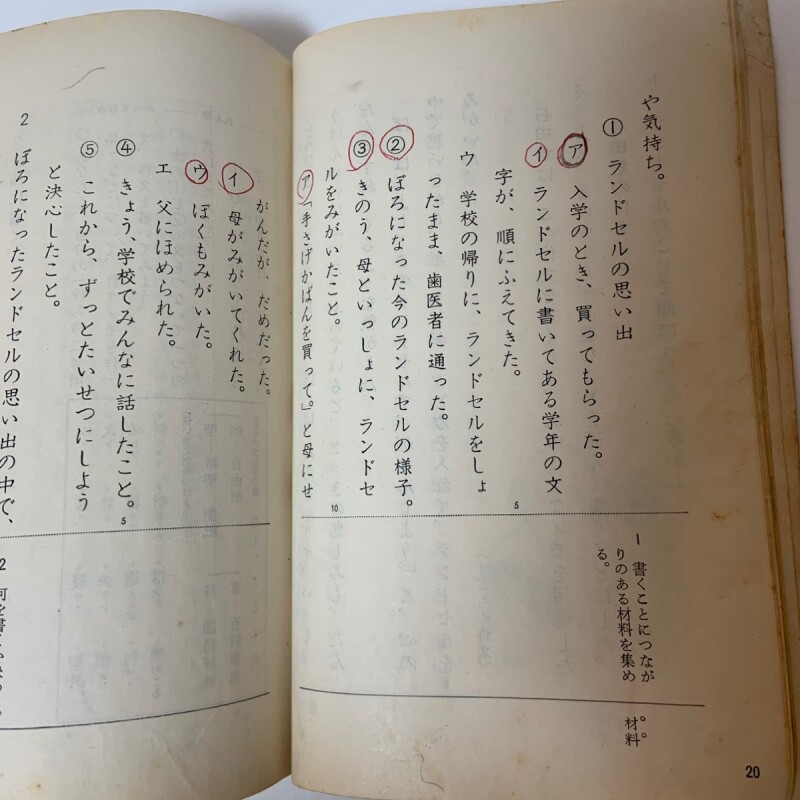 や気持ち。
① ランドセルの思い出
ア 入学のとき、買ってもらった。
イ ランドセルに書いてある学年の文
字が、順にふえてきた。
ウ 学校の帰りに、ランドセルをしょ
ったまま、歯医者に通った。
② ぼろになった今のランドセルの様子。
③ きのう、母といっしょに、ランドセ
ルをみがいたこと。
ア「手さげかばんを買って。」と母にせ
5
10
1 書くことにつなが
りのある材料を集め
る。
材料
20
がんだが、だめだった。
イ 母がみがいてくれた。
ウ ぼくもみがいた。
エ 父にほめられた。
④ きょう、学校でみんなに話したこと。
⑤ これから、ずっとたいせつにしよう
と決心したこと。
2 ぼろになったランドセルの思い出の中で、
5
2 何を書く